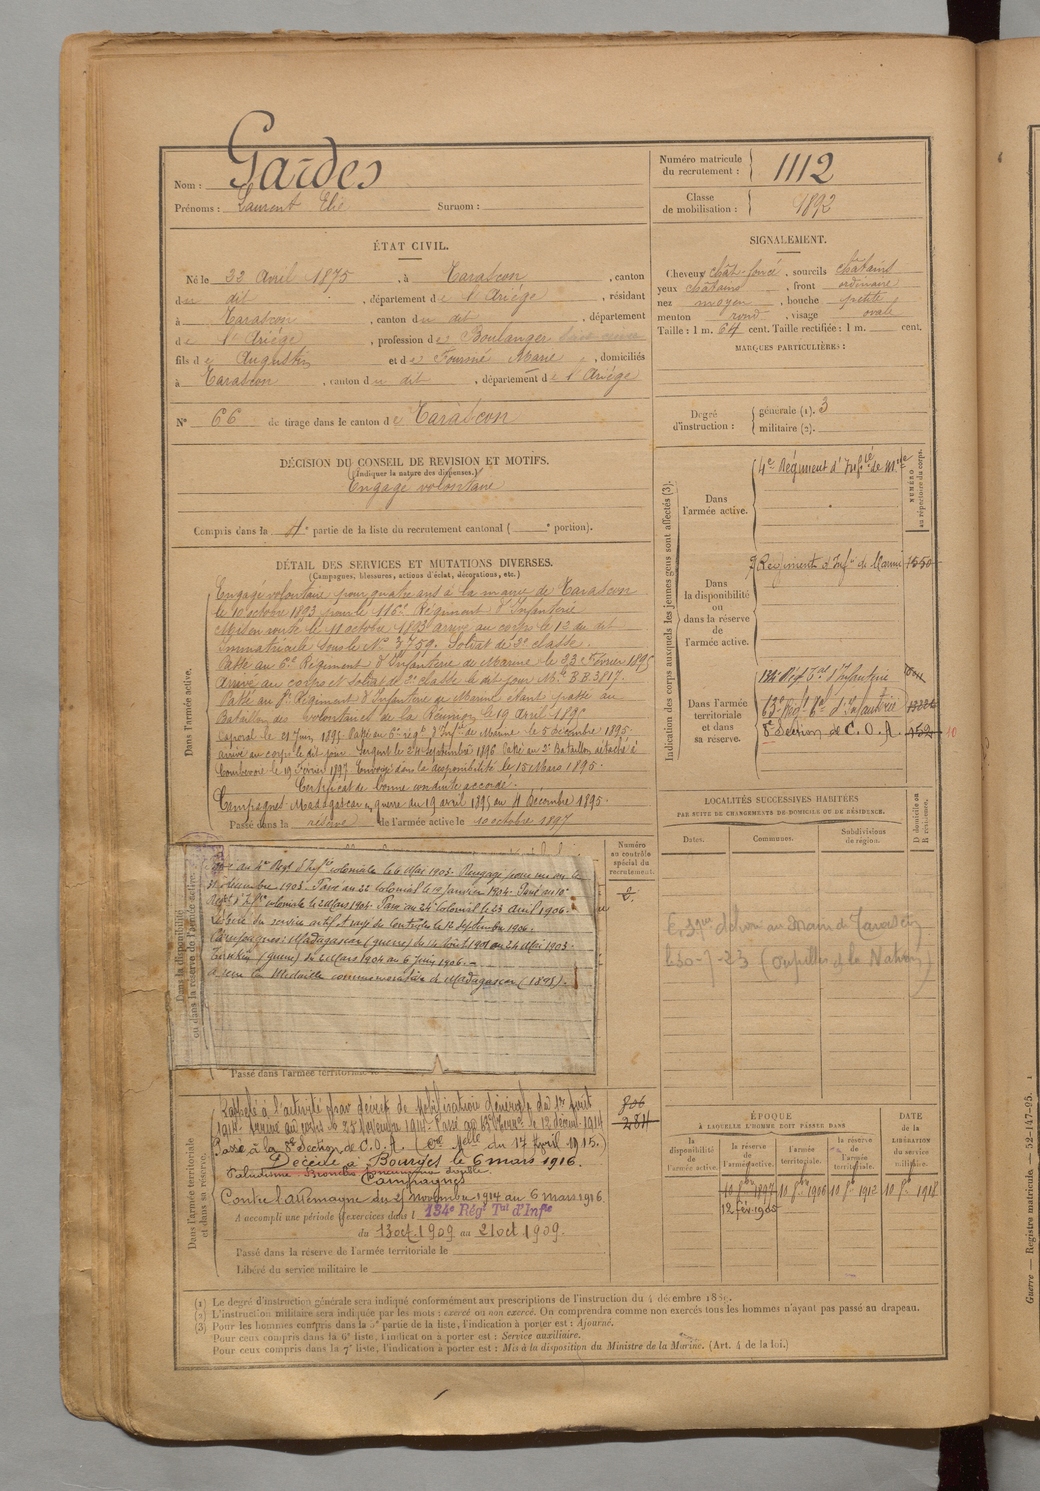 Nom : Gardes
Prénoms : Laurent Elie Surnom :
Numéro matricule du recrutement : 1112
Classe de mobilisation : 1892
ÉTAT CIVIL.
Né le 22 Avril 1875, à Tarascon, canton
du dit, département de l'Ariège, résidant
à Tarascon, canton du dit, département
de l'Ariège, profession de Boulanger
fils de Augustin et de Fourmé Marie, domiciliés
à Tarascon, canton du dit, département de l'Ariège
N° 66 de tirage dans le canton de Tarascon
SIGNALEMENT.
Cheveux chât. foncé, sourcils châtains
yeux châtains, front ordinaire
nez moyen, bouche petite
menton rond, visage ovale
Taille : 1 m. 64 cent. Taille rectifiée : 1 m. cent.
MARQUES PARTICULIÈRES :
Degré d'instruction : générale (1). 3
militaire (2).
DÉCISION DU CONSEIL DE REVISION ET MOTIFS.
(Indiquer la nature des dispenses.)
Engagé volontaire
Compris dans la 4e partie de la liste du recrutement cantonal ( e portion).
DÉTAIL DES SERVICES ET MUTATIONS DIVERSES.
(Campagnes, blessures, actions d'éclat, décorations, etc.)
Dans l'armée active.
Engagé volontaire pour quatre ans à la mairie de Tarascon
le 10 octobre 1893 pour le 116e Régiment d'Infanterie
Mis en route le 11 octobre 1893 arrivé au corps le 12 du dit
Immatriculé sous le N° 3759. Soldat de 2e classe.
Passé au 6e Régiment d'Infanterie de Marine le 23 Février 1895
Arrivé au corps et Soldat de 2e classe le dit jour Mle BB 3817.
Passé au 8e Régiment d'Infanterie de Marine étant passé au
Bataillon des Volontaires de la Réunion le 19 Avril 1895
Caporal le 21 Juin 1895. Passé au 6e régt d'Infie de Marine le 5 décembre 1895.
arrivé au corps le dit jour. Sergent le 24 Septembre 1896. Passé au 2e Bataillon détaché à
le 19 Février 1897. Envoyé dans la disponibilité le 15 Mars 189
Certificat de bonne conduite accordé.
Campagnes: Madagascar en guerre du 19 avril 1895 au 4 Décembre 1895.
Passé dans la réserve de l'armée active le 10 octobre 1897
Dans la disponibilité ou dans la réserve de l'armée active.
Passé au 4e Régt d'Infie coloniale le 6 Mai 1903. Rengagé pour un an le
31 décembre 1903. Passé au 22 Colonial le 19 Janvier 1904. Passé au 10e
Régt d'Infie coloniale le 2 Mars 1904. Passé au 24 Colonial le 23 Avril 1906.
du service actif et rayé des contrôles le 14 Septembre 1906.
Campagnes: Madagascar (guerre) du 14 Août 1901 au 24 Mai 1903.
Tonkin (guerre) du 2 Mars 1904 au 6 Juin 1906.
A reçu la Médaille commémorative de Madagascar (1895).
Passé dans l'armée territoriale le
Numéro au contrôle spécial du recrutement.
Dans l'armée territoriale et dans sa réserve.
Rappelé à l'activité par décret de Mobilisation Générale du 1er Août
1914. Arrivé au corps le 25 Novembre 1914. Passé au 63e Terral le 12 décem. 1914
Passé à la 8e Section de C.O.A. (Ore Melle du 17 Avril 1915.)
Décédé à Bourges le 6 mars 1916.
Paludisme Broncho
Campagnes
Contre l'Allemagne du 25 novembre 1914 au 6 mars 1916
A accompli une période d'exercices dans l 134e Régt Tal d'Infie
du 13 oct. 1909 au 21 oct. 1909.
Passé dans la réserve de l'armée territoriale le
Libéré du service militaire le
Indication des corps auxquels les jeunes gens sont affectés (3).
NUMÉRO au répertoire du corps.
Dans l'armée active.
4e Régiment d'Infie de Mne
Dans la disponibilité ou dans la réserve de l'armée active.
Régiment d'Infie de Marine 1550
Dans l'armée territoriale et dans sa réserve.
134e Régt Tal d'Infanterie
63e Régt Tal d'Infanterie
8e Section de C.O.A.
LOCALITÉS SUCCESSIVES HABITÉES
PAR SUITE DE CHANGEMENTS DE DOMICILE OU DE RÉSIDENCE.
Dates. Communes. Subdivisions de région. D domicile ou R résidence.
au Maire de Tarascon
le 30-7-23 (Pupilles de la Nation)
ÉPOQUE
À LAQUELLE L'HOMME DOIT PASSER DANS
la disponibilité de l'armée active. la réserve de l'armée active. l'armée territoriale. la réserve de l'armée territoriale.
DATE de la LIBÉRATION du service militaire.
10 8bre 1897 10 8bre 1906 10 8bre 1912 10 8bre 1918
12 fév. 1905
(1) Le degré d'instruction générale sera indiqué conformément aux prescriptions de l'instruction du 4 décembre 1889.
(2) L'instruction militaire sera indiquée par les mots : exercé ou non exercé. On comprendra comme non exercés tous les hommes n'ayant pas passé au drapeau.
(3) Pour les hommes compris dans la 5e partie de la liste, l'indication à porter est : Ajourné.
Pour ceux compris dans la 6e liste, l'indication à porter est : Service auxiliaire.
Pour ceux compris dans la 7e liste, l'indication à porter est : Mis à la disposition du Ministre de la Marine. (Art. 4 de la loi.)
Guerre — Registre matricule. — 52-147-95.